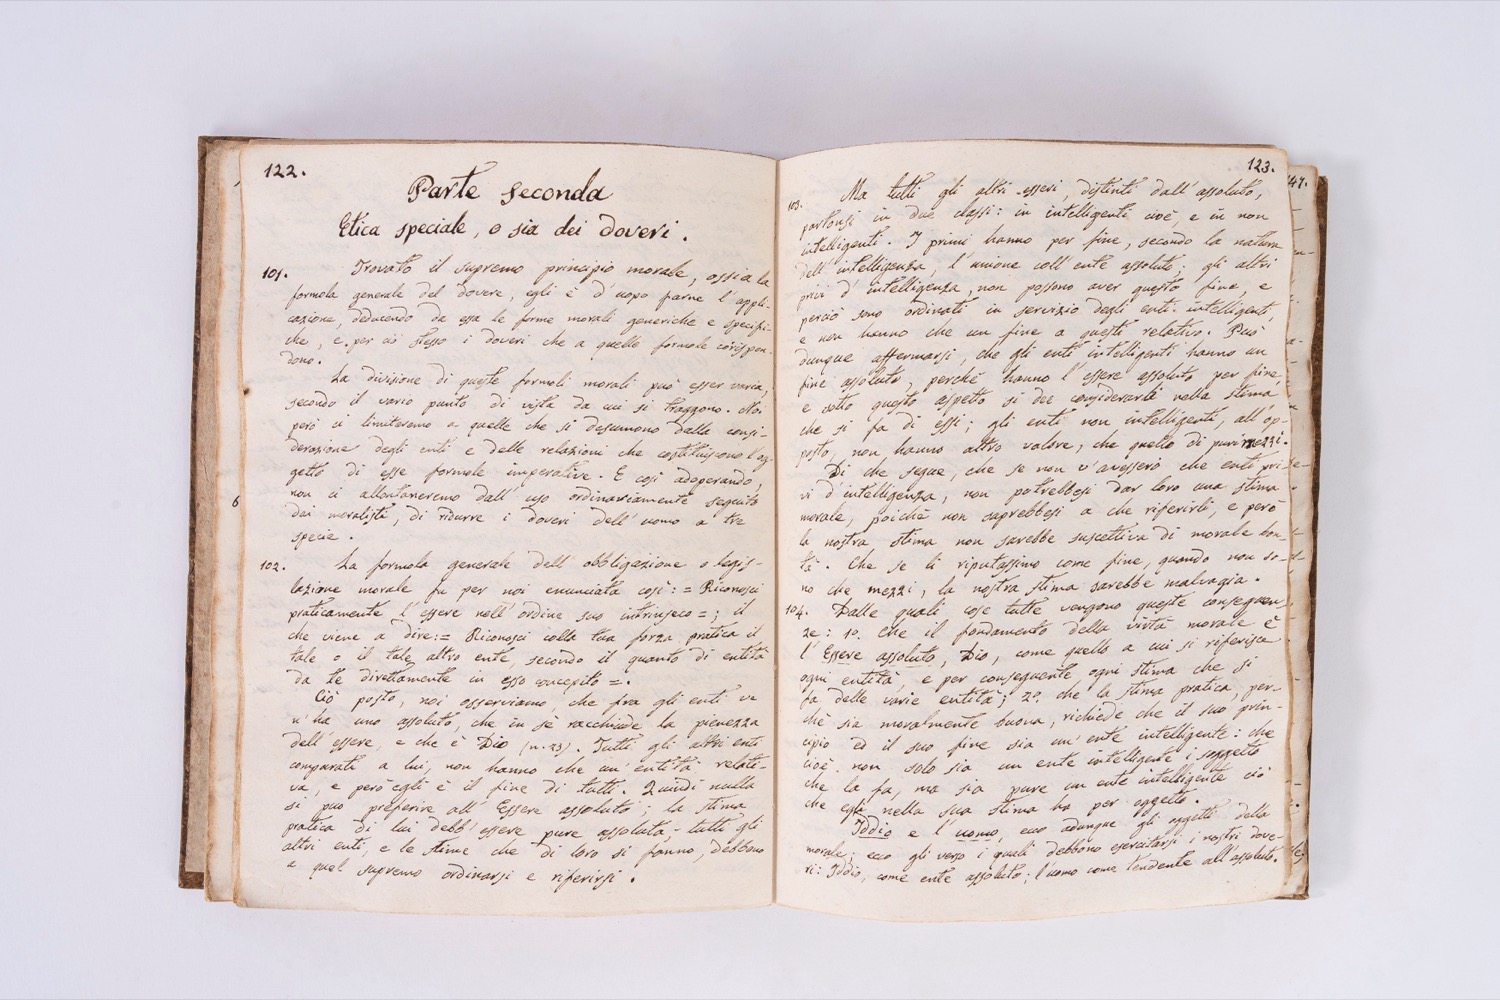 122.
Parte seconda
Etica speciale, o sia dei doveri.
101. Trovato il supremo principio morale, ossia la
formola generale del dovere, egli è d'uopo farne l'appli-
cazione, deducendo da essa le forme morali generiche e specifi-
che, e per ciò stesso i doveri che a quelle formole corrispon-
dono.
La divisione di queste formoli morali può esser varia,
secondo il vario punto di vista da cui si traggono. Noi
però ci limiteremo a quelle che si desumono dalla consi-
derazione degli enti e delle relazioni che costituiscono l'og-
getto di esse formole imperative. E così adoperando,
non ci allontaneremo dall'uso ordinariamente seguito
dai moralisti, di ridurre i doveri dell'uomo a tre
specie.
102. La formola generale dell'obbligazione o legis-
lazione morale fu per noi enunciata così: = Riconosci
praticamente l'essere nell'ordine suo intrinseco =; il
che viene a dire: = Riconosci colla tua forza pratica il
tale o il tale altro ente, secondo il quanto di entità
da te direttamente in esso concepito =.
Ciò posto, noi osserviamo, che fra gli enti ve
n'ha uno assoluto, che in sè racchiude la pienezza
dell'essere, e che è Dio (n. 23). Tutti gli altri enti
comparati a lui, non hanno che un'entità relati-
va, e però egli è il fine di tutti. Quindi nulla
si può preferire all'Essere assoluto; la stima
pratica di lui debb'essere pure assoluta; tutti gli
altri enti, e le stime che di loro si fanno, debbono
a quel supremo ordinarsi e riferirsi.
6
123.
103. Ma tutti gli altri esseri, distinti dall'assoluto,
partonsi in due classi: in intelligenti cioè, e in non
intelligenti. I primi hanno per fine, secondo la natura
dell'intelligenza, l'unione coll'ente assoluto; gli altri
privi d'intelligenza, non possono aver questo fine, e
perciò sono ordinati in servizio degli enti intelligenti,
e non hanno che un fine a questi relativo. Può
dunque affermarsi, che gli enti intelligenti hanno un
fine assoluto, perchè hanno l'essere assoluto per fine,
e sotto questo aspetto si dee considerarli nella stima
che si fa di essi; gli enti non intelligenti, all'op-
posto, non hanno altro valore, che quello di puri mezzi.
Di che segue, che se non v'avessero che enti pri-
vi d'intelligenza, non potrebbesi dar loro una stima
morale, poichè non saprebbesi a che riferirli, e però
la nostra stima non sarebbe suscettiva di morale bon-
tà. Che se li riputassimo come fine, quando non so-
no che mezzi, la nostra stima sarebbe malvagia.
104. Dalle quali cose tutte vengono queste conseguen-
ze: 1º. che il fondamento della virtù morale è
l'Essere assoluto, Dio, come quello a cui si riferisce
ogni entità, e per conseguente ogni stima che si
fa delle varie entità; 2º. che la stima pratica, per-
chè sia moralmente buona, richiede che il suo prin-
cipio ed il suo fine sia un'ente intelligente: che
cioè non solo sia un ente intelligente il soggetto
che la fa, ma sia pure un ente intelligente ciò
che egli nella sua stima ha per oggetto.
Iddio e l'uomo, ecco adunque gli oggetti della
morale; ecco gli verso i quali debbono esercitarsi i nostri dove-
ri: Iddio, come ente assoluto; l'uomo come tendente all'assoluto.
147.